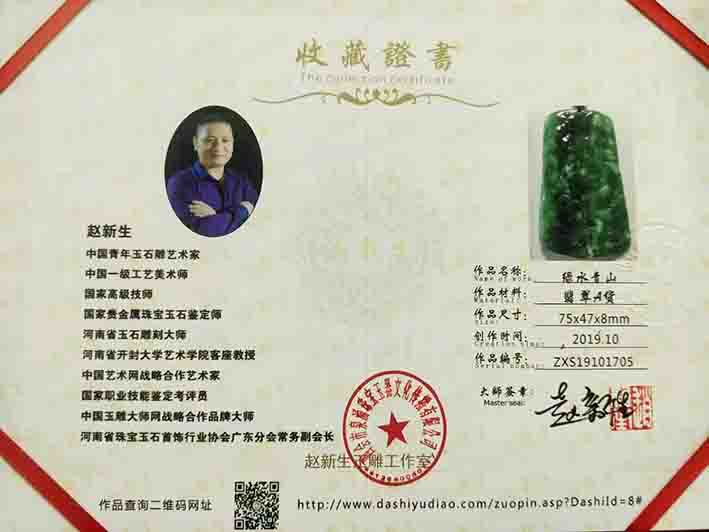 收藏證書
The Collection Certificate
赵新生
中国青年玉石雕艺术家
中国一级工艺美术师
国家高级技师
国家贵金属珠宝玉石鉴定师
河南省玉石雕刻大师
河南省开封大学艺术学院客座教授
中国艺术网战略合作艺术家
国家职业技能鉴定考评员
中国玉雕大师网战略合作品牌大师
河南省珠宝玉石首饰行业协会广东分会常务副会长
作品名称: 绿水青山
Name of work:
作品材料: 翡翠A货
Material:
作品尺寸: 75x47x8mm
Size:
创作时间: 2019.10
Creation time:
作品编号: ZXS19101705
Serial number:
大师签章: 赵新生
Master seal:
赵新生玉雕工作室
作品查询二维码网址
http://www.dashiyudiao.com/zuopin.asp?DashiId=8#